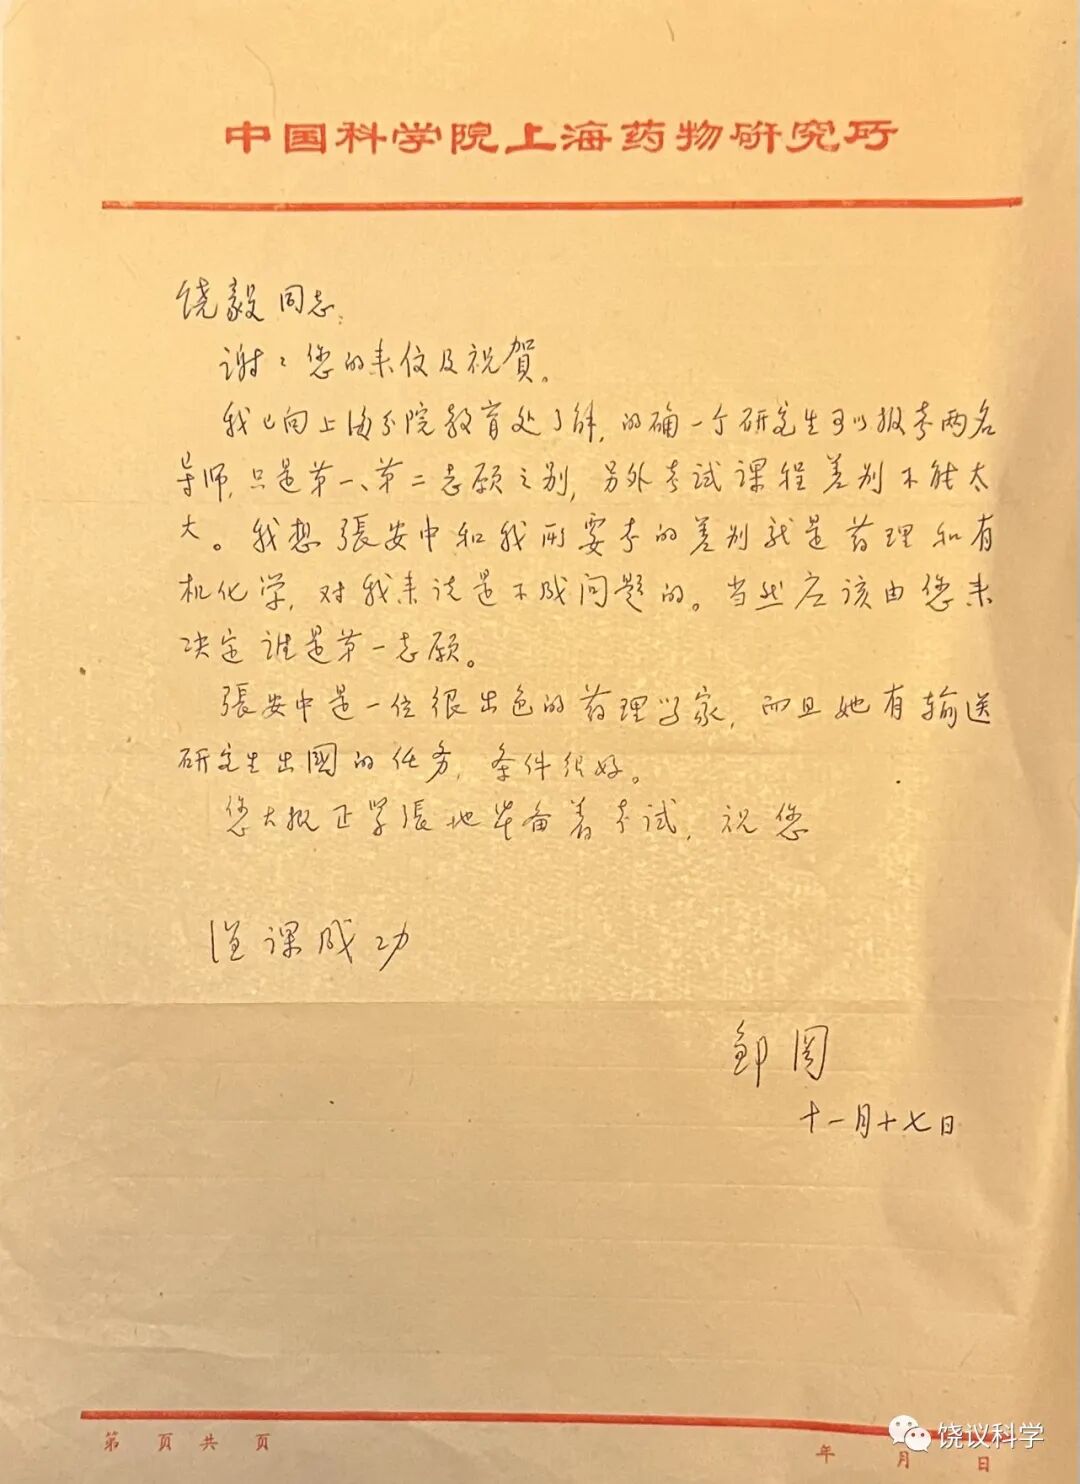 中国科学院上海药物研究所
饶毅同志:
谢々您的来信及祝賀。
我已向上海分院教育处了解,的确一个研究生可以报考两名
导师,只是第一、第二志愿之别,另外考试课程差别不能太
大。我想張安中和我所要考的差别就是药理和有
机化学,对我来说是不成问题的。当然应该由您来
决定谁是第一志愿。
張安中是一位很出色的药理学家,而且她有输送
研究生出國的任务,条件很好。
您大概正紧張地准备着考试,祝您
课成功
邹冈
十一月十七日
第 页 共 页
年 月 日
饶议科学